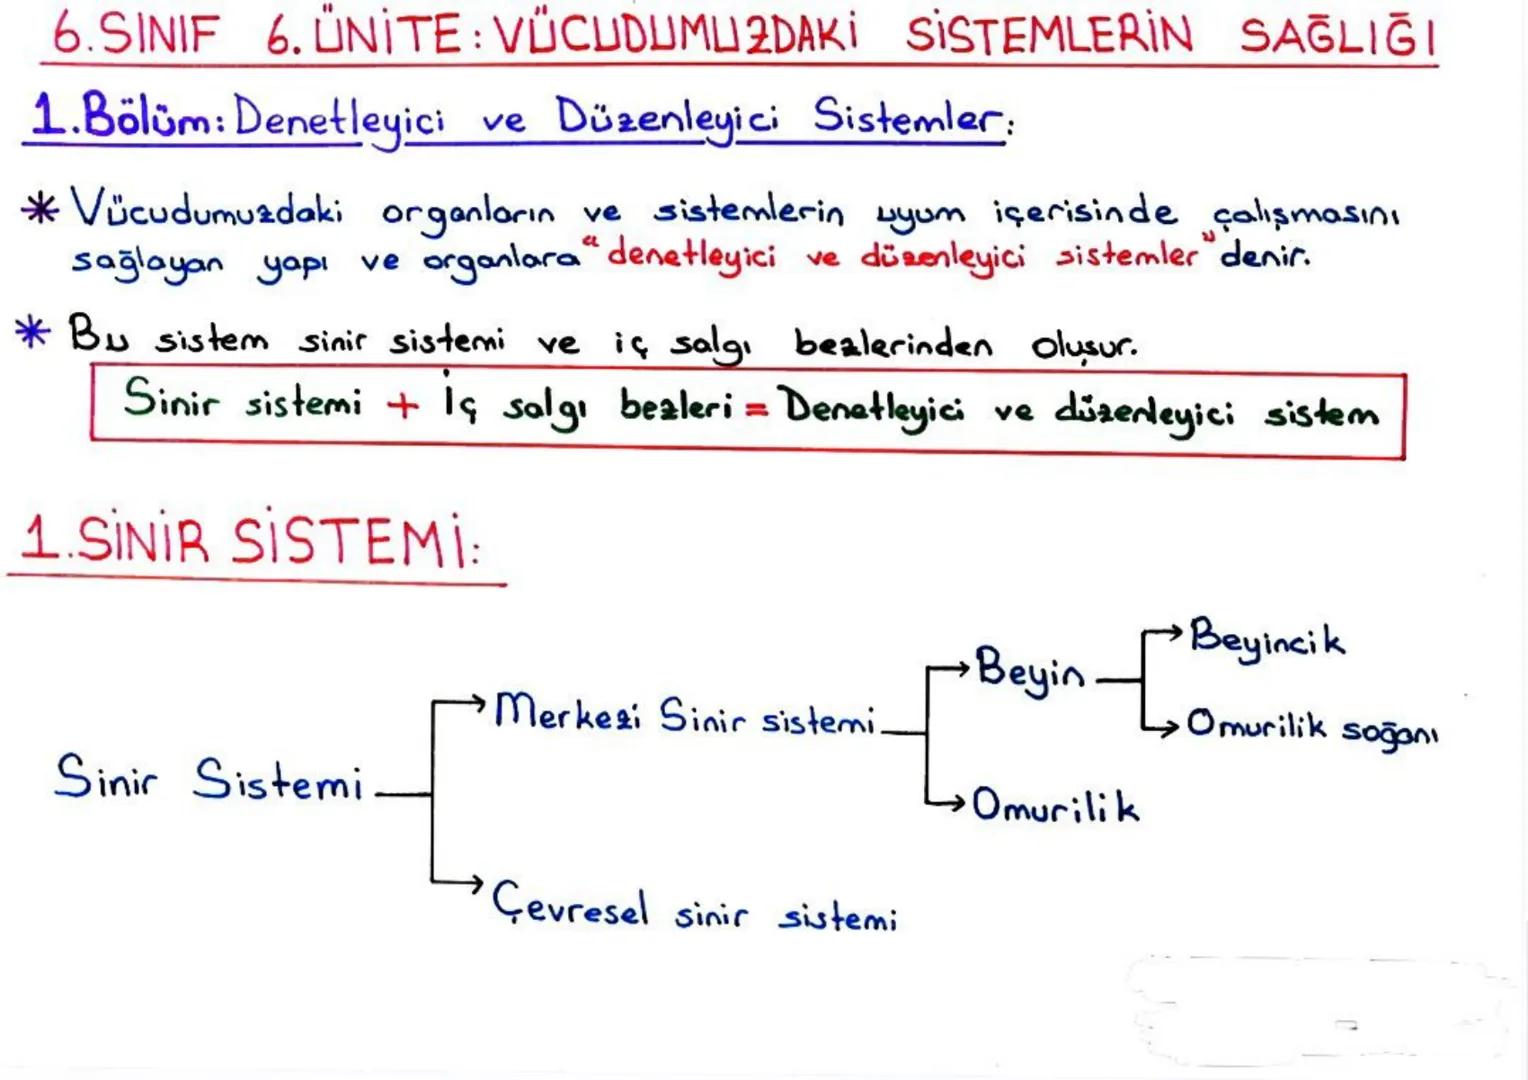 6.SINIF 6.ÜNİTE: VÜCUDUMUZDAKİ SİSTEMLERİN SAĞLIĞI
1.Bölüm: Denetleyici ve Düzenleyici Sistemler:
* Vücudumuzdaki organların ve sistemlerin uyum içerisinde çalışmasını
sağlayan yapı ve organlara "denetleyici ve düzenleyici sistemler" denir.
* Bu sistem sinir sistemi ve iç salgı bezlerinden oluşur.
Sinir sistemi + İç salgı bezleri = Denetleyici ve düzenleyici sistem
1.SİNİR SİSTEMİ:
Sinir Sistemi
Merkezi Sinir sistemi
Beyin
Beyincik
Omurilik soğanı
Omurilik
Çevresel sinir sistemi